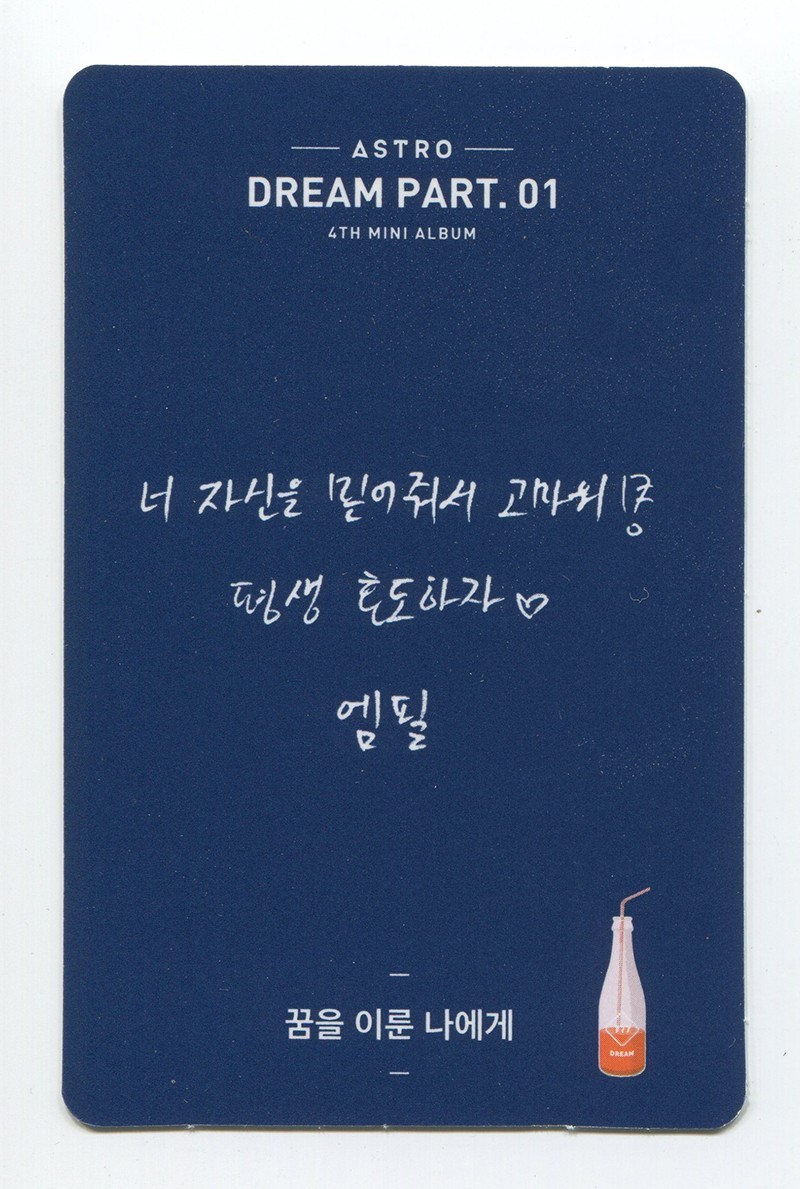 ASTRO
DREAM PART. 01
4TH MINI ALBUM
너 자신을 믿어줘서 고마워
평생 효도하자♡
엠필
꿈을 이룬 나에게
DREAM